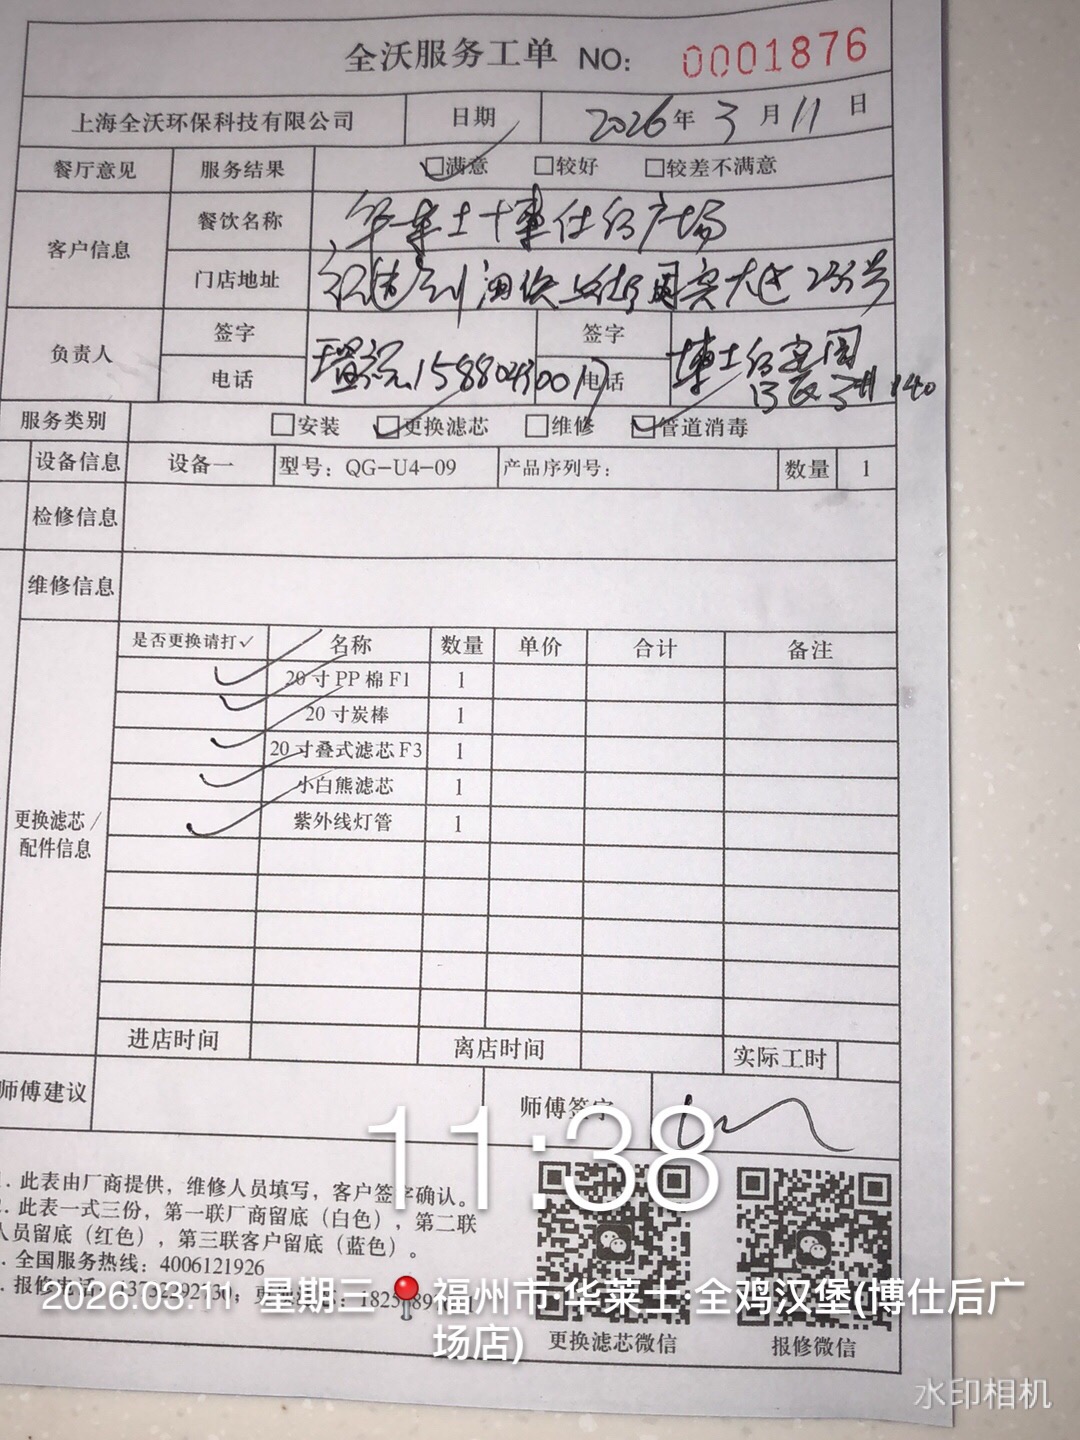 全沃服务工单 NO: 0001876
上海全沃环保科技有限公司 日期 2026年3月11日
餐厅意见 服务结果 □满意 □较好 □较差不满意
客户信息 餐饮名称 华莱士十博仕后广场
门店地址 大道231号
负责人 签字 签字
电话 电话
服务类别 □安装 □更换滤芯 □维修 □管道消毒
设备信息 设备一 型号：QG-U4-09 产品序列号： 数量 1
检修信息
维修信息
是否更换请打✓ 名称 数量 单价 合计 备注
✓ 20寸PP棉F1 1
✓ 20寸炭棒 1
✓ 20寸叠式滤芯F3 1
✓ 小白熊滤芯 1
✓ 紫外线灯管 1
更换滤芯/
配件信息
进店时间 离店时间 实际工时
师傅建议 师傅签字
11:38
. 此表由厂商提供，维修人员填写，客户签字确认。
. 此表一式三份，第一联厂商留底（白色），第二联
人员留底（红色），第三联客户留底（蓝色）。
. 全国服务热线：4006121926
. 报修电话
更换滤芯微信 报修微信
2026.03.11 星期三 福州市·华莱士·全鸡汉堡(博仕后广
场店)
水印相机